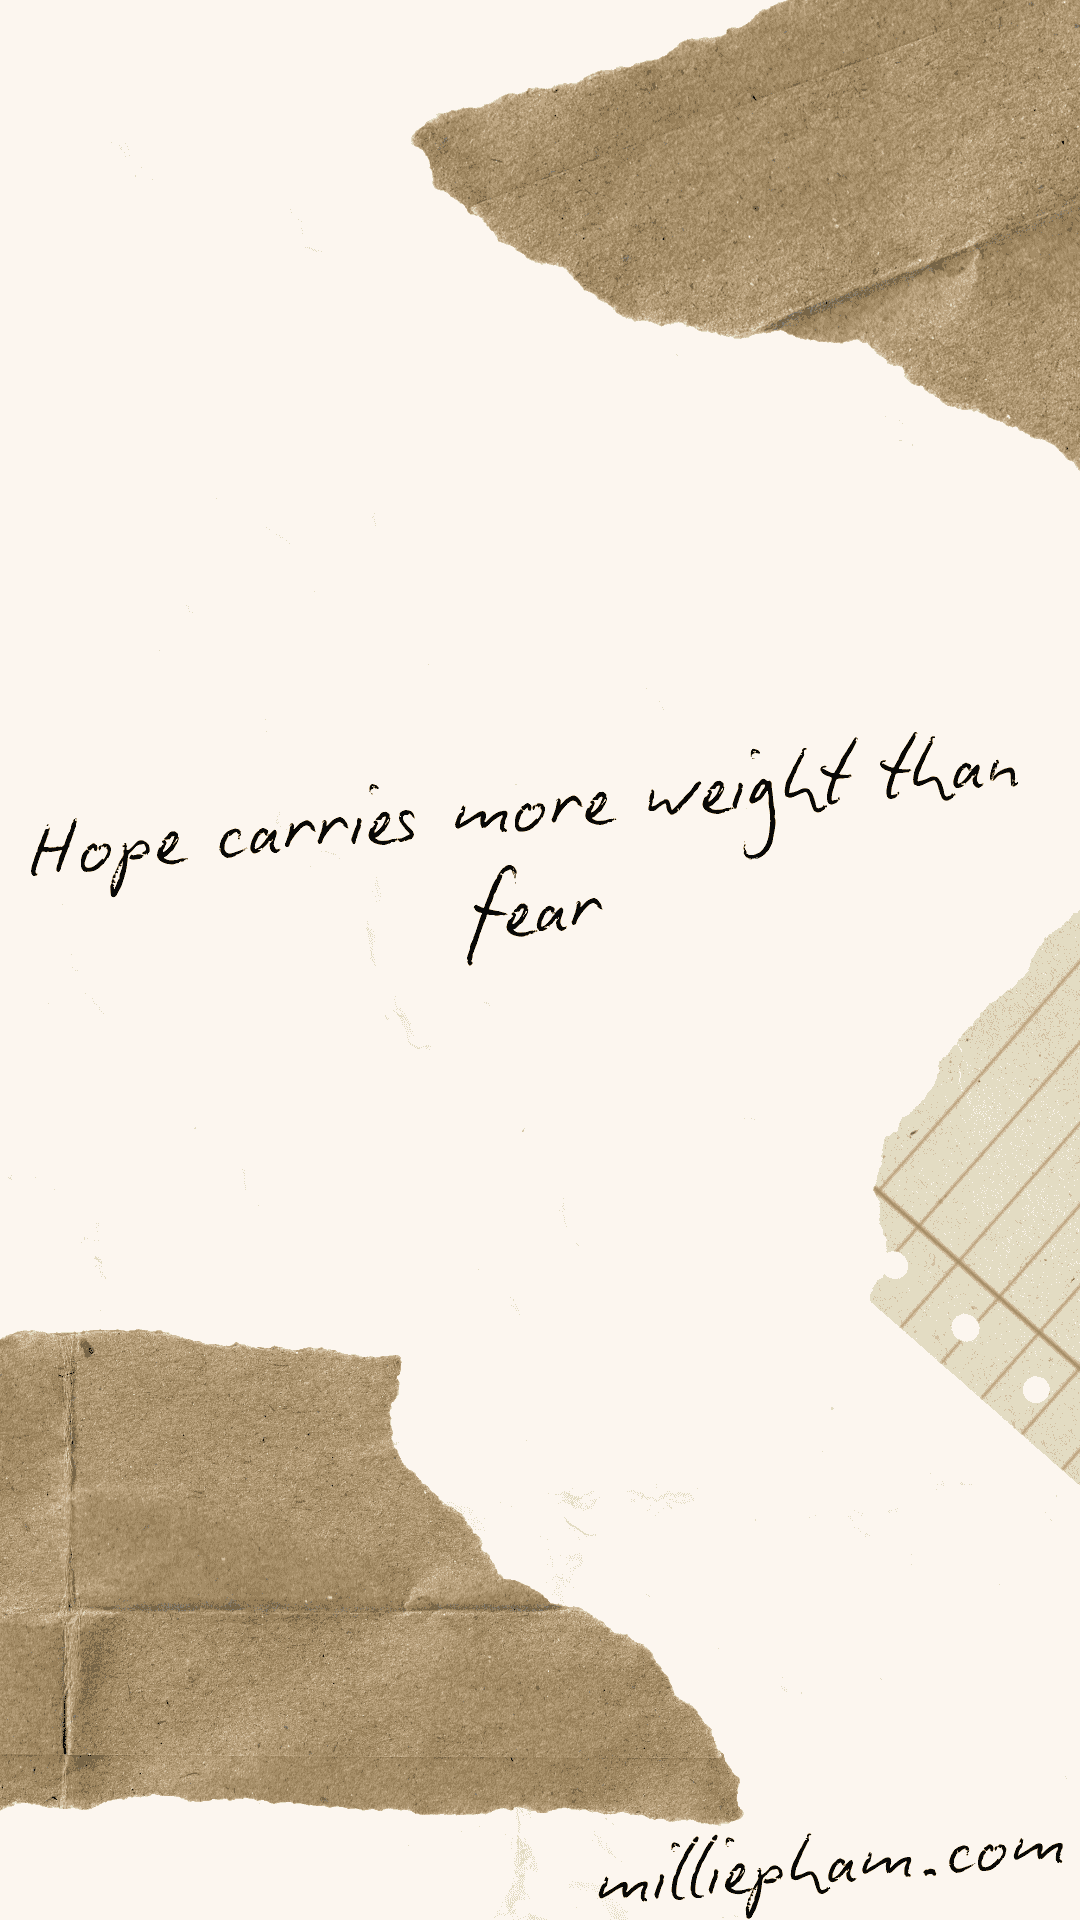 Hope carries more weight than
fear
milliepham.com